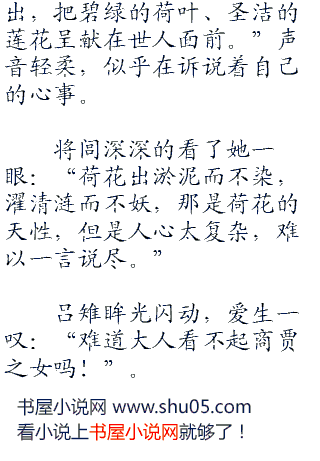 出，把碧绿的荷叶、圣洁的
莲花呈献在世人西前。”声
音轻柔，似乎在诉说着自己
的心事。
将闾深深的看了她一
眼：“荷花出淤泥而不染，
濯清涟而不妖，那是荷花的
天性，但是人心太复杂，难
以一言说尽。”
吕雉眸光闪动，爱生一
叹：“难道大人看不起商贾
之女吗！”。
书屋小说网 www.shu05.com
看小说上书屋小说网就够了！